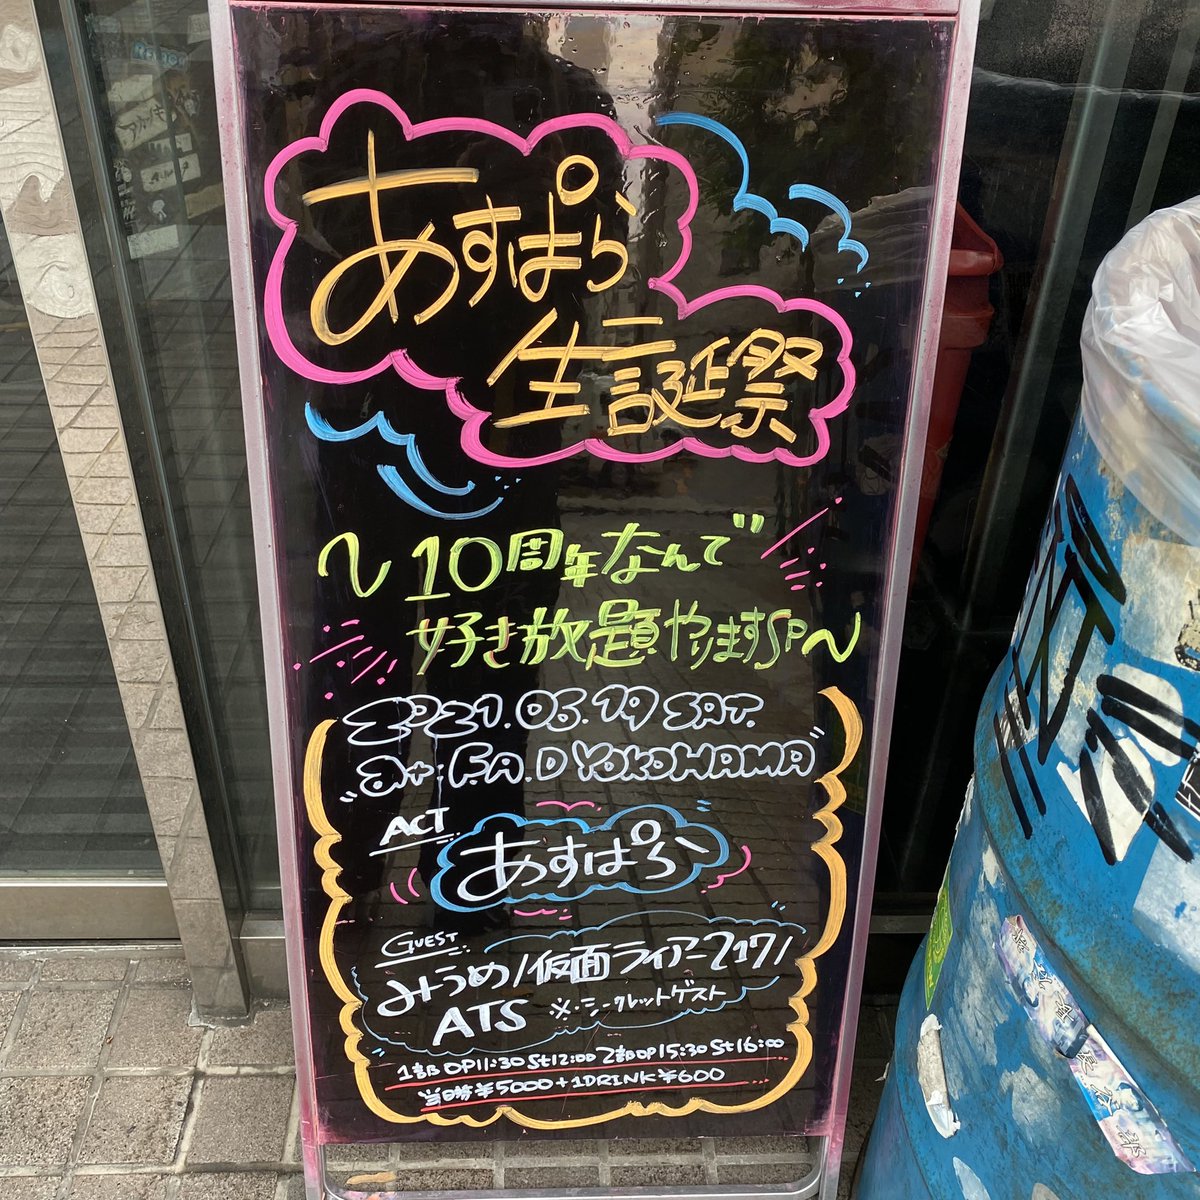 あすぱら
生誕祭
〜10周年なんで
好き放題やりますSP〜
2021.06.19 SAT.
"at F.A.D YOKOHAMA"
ACT
あすぱら
GUEST
みうめ/仮面ライアー217/
ATS ※シークレットゲスト
1部OP11:30 St12:00 2部OP15:30 St16:00
当日券¥5000+1DRINK¥600